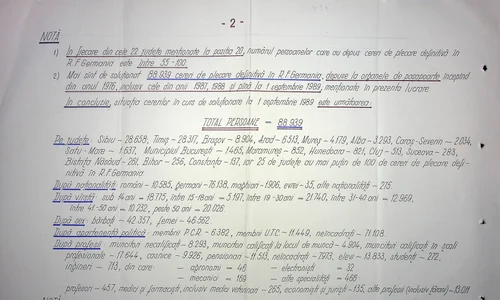 - 2 -
NOTĂ
1) În fiecare din cele 22 județe menționate la poziția 20, numărul persoanelor care au depus cereri de plecare definitivă în
R.F. Germania este între 55-100.
2) Mai sînt de soluționat 88.939 cereri de plecare definitivă în R.F. Germania, depuse la organele de pașapoarte începînd
din anul 1976, inclusiv cele din anii 1987, 1988 și pînă la 1 septembrie 1989, menționate în prezenta lucrare.
În concluzie, situația cererilor în curs de soluționare la 1 septembrie 1989 este următoarea:
TOTAL PERSOANE = 88.939
Pe județe: Sibiu - 28.658, Timiș - 28.317, Brașov - 8.904, Arad - 6.513, Mureș - 4.179, Alba - 3.293, Caraș-Severin - 2.034,
Satu-Mare - 1.637, Municipiul București - 1.465, Maramureș - 852, Hunedoara - 821, Cluj - 513, Suceava - 283,
Bistrița Năsăud - 261, Bihor - 256, Constanța - 137, iar 25 de județe au mai puțin de 100 de cereri de plecare defi-
nitivă în R.F. Germania
După naționalități: români - 10.585, germani - 76.138, maghiari - 1.906, evrei - 35, alte naționalități - 275.
După vîrstă: sub 14 ani - 18.775, între 15-18 ani - 5.197, între 19-30 ani - 21.740, între 31-40 ani - 12.969,
între 41-50 ani - 10.232, peste 50 ani - 20.026.
După sex: bărbați - 42.357, femei - 46.562.
După apartenența politică: membri P.C.R. - 6.382, membri U.T.C. - 11.449, neîncadrați - 71.108.
După profesii: muncitori necalificați - 8.293, muncitori calificați la locul de muncă - 4.904, muncitori calificați în școli
profesionale - 17.644, casnice - 9.926, pensionari - 11.513, neîncadrați - 7.973, elevi - 13.833, studenți - 272,
ingineri - 713, din care: - agronomi = 46 - electroniști = 32
- mecanici = 159 - alte specialități = 466
profesori - 457, medici și farmaciști, inclusiv medici veterinari - 265, economiști și juriști - 135, alte profesii (inclusiv fără) - 13.011